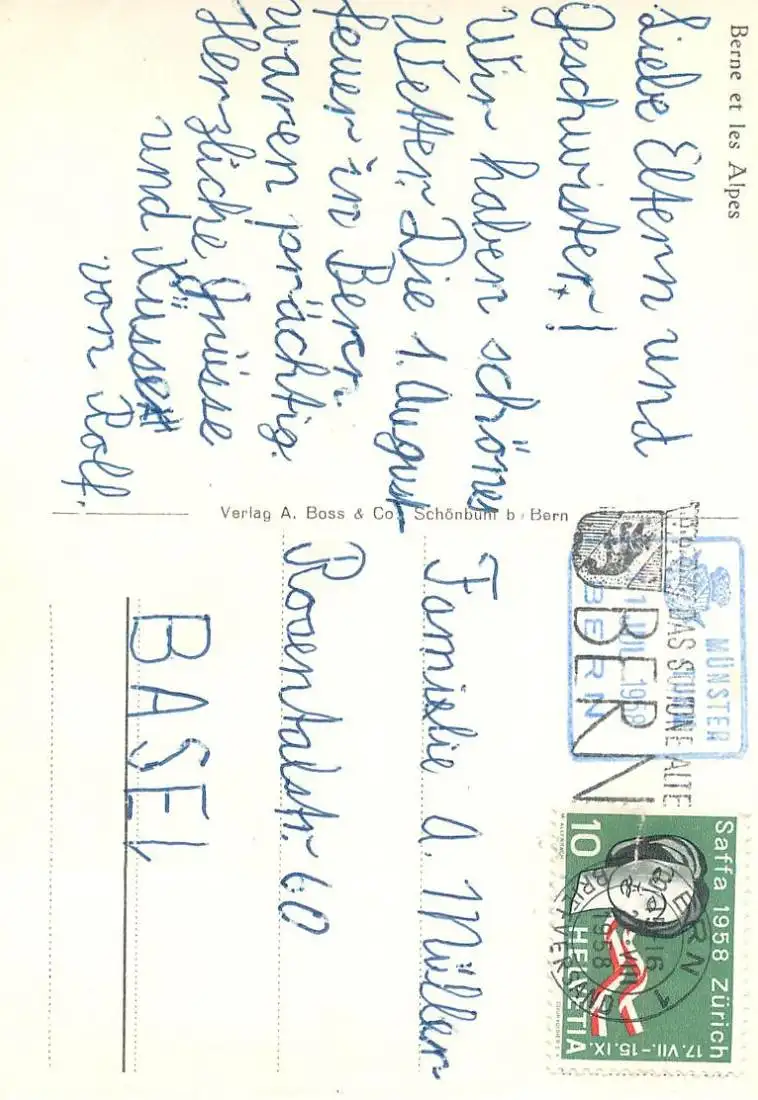 Berne et les Alpes
Liebe Eltern und
Geschwister!
Wir haben schönes
Wetter. Die 1. August
feuer in Bern
waren prächtig.
Herzliche Grüsse
und Küsse
von Rolf.
Verlag A. Boss & Co. Schönbühl b/Bern
MÜNSTER
BERN
DAS SCHÖNE ALTE
BERN
Saffa 1958 Zürich
17.VII.-15.IX.
10
HELVETIA
BERN 1
1958
BRIEFVERSAND
Familie A. Müller
Rosentalstr. 60
BASEL